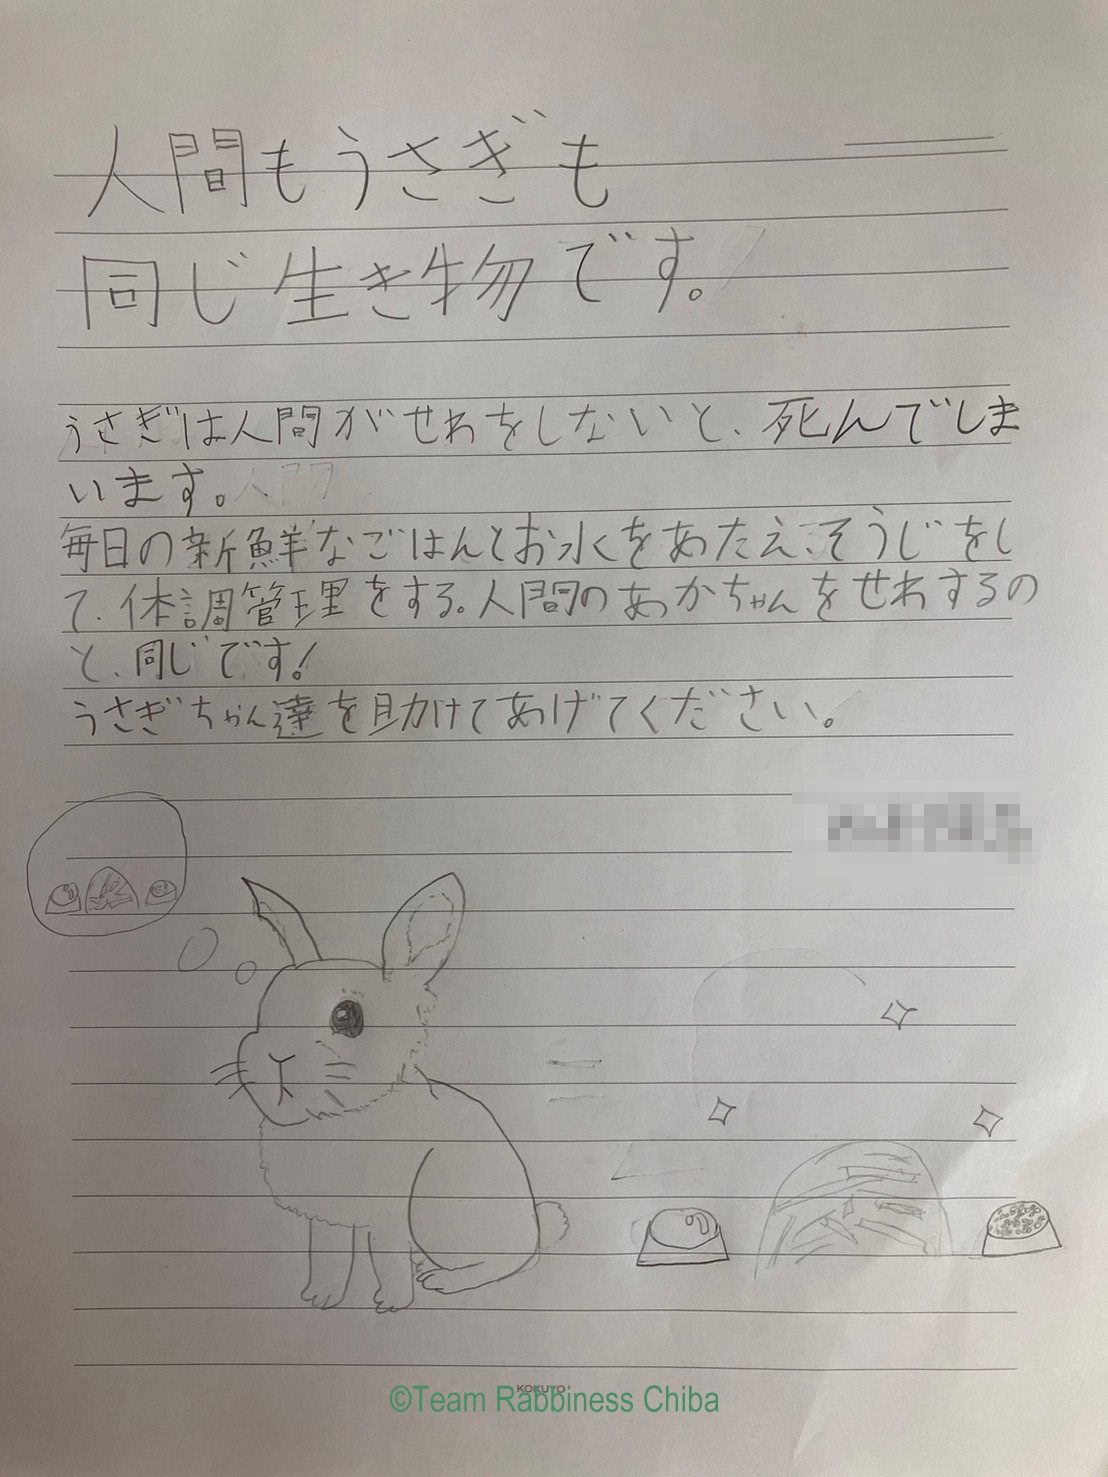 人間もうさぎも
同じ生き物です。
うさぎは人間がせわをしないと、死んでしま
います。人間
毎日の新鮮なごはんとお水をあたえ、そうじをし
て、体調管理をする。人間のあかちゃんをせわするの
と、同じです!
うさぎちゃん達を助けてあげてください。
KOKUYO
©Team Rabbiness Chiba